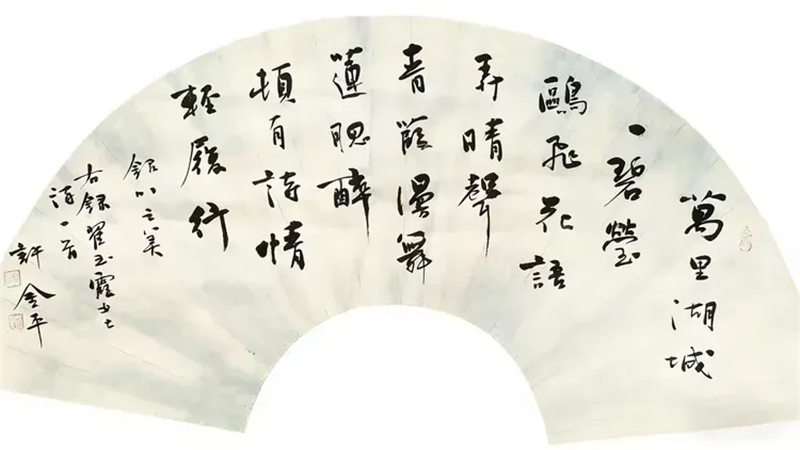 萬里湖城
一碧瑩
鷗飛花語
弄晴聲
青漫舞
蓮腮醉
頓有詩情
輕履行
以之美
右錄翟玉霞女士
詩一首
許金平